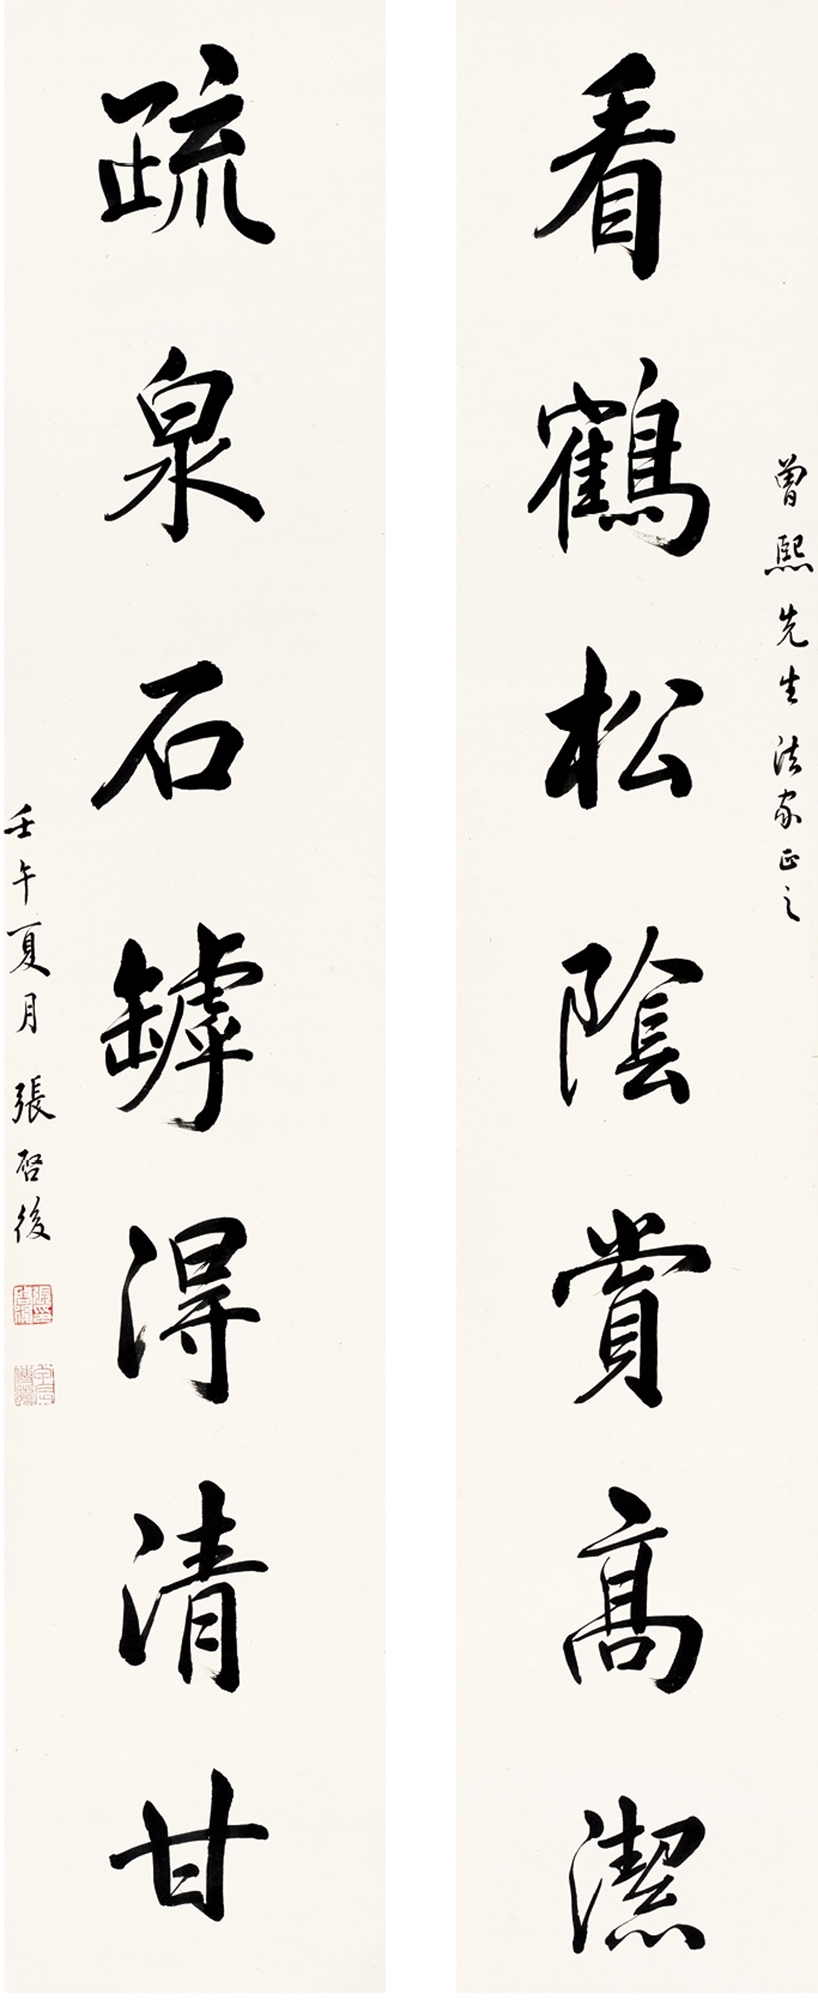 曾熙先生法家正之
看鶴松陰賞高潔
疏泉石罅得清甘
壬午夏月張啓後